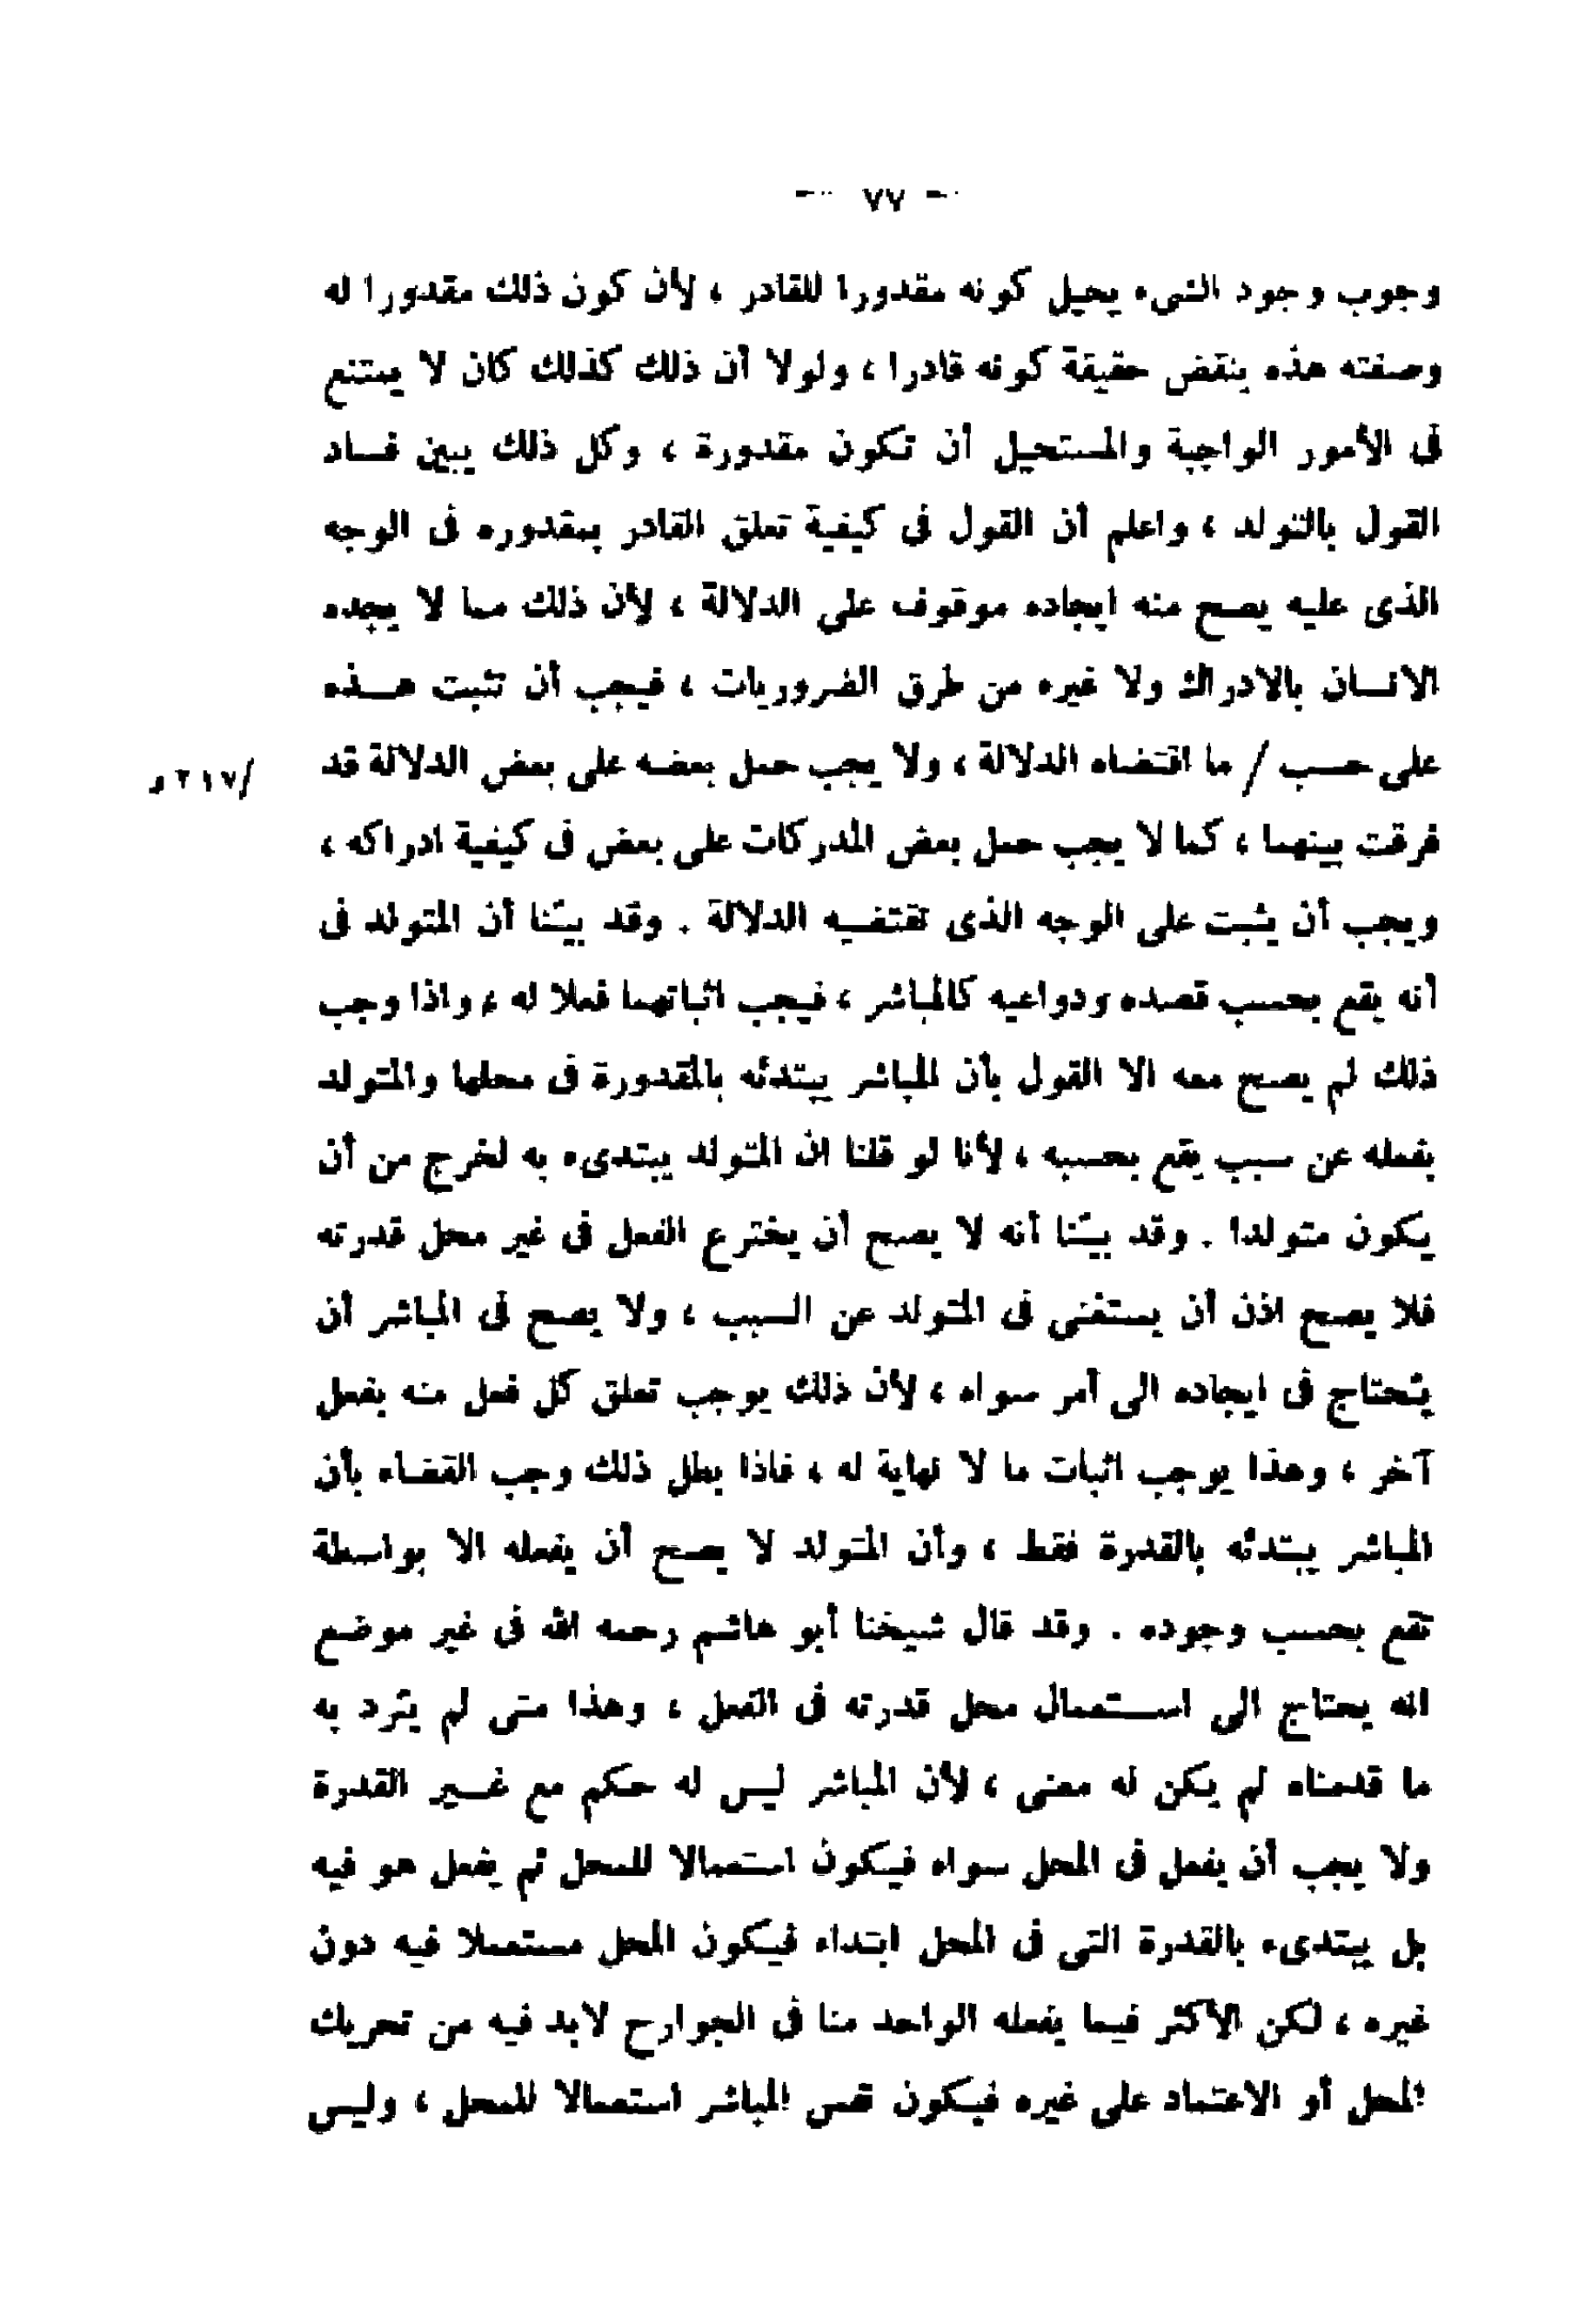 — ٧٧ —
وجوب وجود الشىء يحيل كونه مقدورا للقادر ، لأن كون ذلك مقدورا له
وصفته هذه ينقض حقيقة كونه قادرا ، ولولا أن ذلك كذلك كان لا يمتنع
فى الأمور الواجبة والمستحيل أن تكون مقدورة ، وكل ذلك يبين فساد
القول بالتولد ، واعلم أن القول فى كيفية تعلق القادر بمقدوره فى الوجه
الذى عليه يصح منه ايجاده موقوف على الدلالة ، لأن ذلك مما لا يجده
الانسان بالادراك ولا غيره من طرق الضروريات ، فيجب أن تثبت هذه
على حسب / ما اقتضاه الدلالة ، ولا يجب حمل بعضه على بعض الدلالة قد
/٢١٧و
فرقت بينهما ، كما لا يجب حمل بعض المدركات على بعض فى كيفية ادراكه ،
ويجب أن يثبت على الوجه الذى تقتفيه الدلالة . وقد بيّنا أن المتولد فى
أنه يقع بحسب قصده ودواعيه كالمباشر ، فيجب اثباتهما فعلا له ، واذا وجب
ذلك لم يصح معه الا القول بأن المباشر يبتدئه بالمقدورة فى محلها والمتولد
يفعله عن سبب يقع بحسبه ، لأنا لو قلنا ان المتولد يبتدىء به لخرج من أن
يكون متولدا . وقد بيّنا أنه لا يصح أن يخترع الفعل فى غير محل قدرته
فلا يصح اذن أن يستغنى فى المتولد عن السبب ، ولا يصح فى المباشر أن
يُحتاج فى ايجاده الى أمر سواه ، لأن ذلك يوجب تعلق كل فعل منه بفعل
آخر ، وهذا يوجب اثبات ما لا نهاية له ، فاذا بطل ذلك وجب القضاء بأن
المباشر يبتدئه بالقدرة فقط ، وأن المتولد لا يصح أن يفعله الا بواسطة
تقع بحسب وجوده . وقد قال شيخنا أبو هاشم رحمه الله فى غير موضع
انه يحتاج الى استعمال محل قدرته فى الفعل ، وهذا متى لم يُرد به
ما قدمناه لم يكن له معنى ، لأن المباشر ليس له حكم مع غير القدرة
ولا يجب أن يفعل فى المحل سواه فيكون استعمالا للمحل ثم يفعل هو فيه
بل يبتدىء بالقدرة التى فى المحل ابتداء فيكون المحل مستعملا فيه دون
غيره ، لكن الأكثر فيما يفعله الواحد منا فى الجوارح لابد فيه من تحريك
المحل أو الاعتماد على غيره فيكون نفس المباشر استعمالا للمحل ، وليس